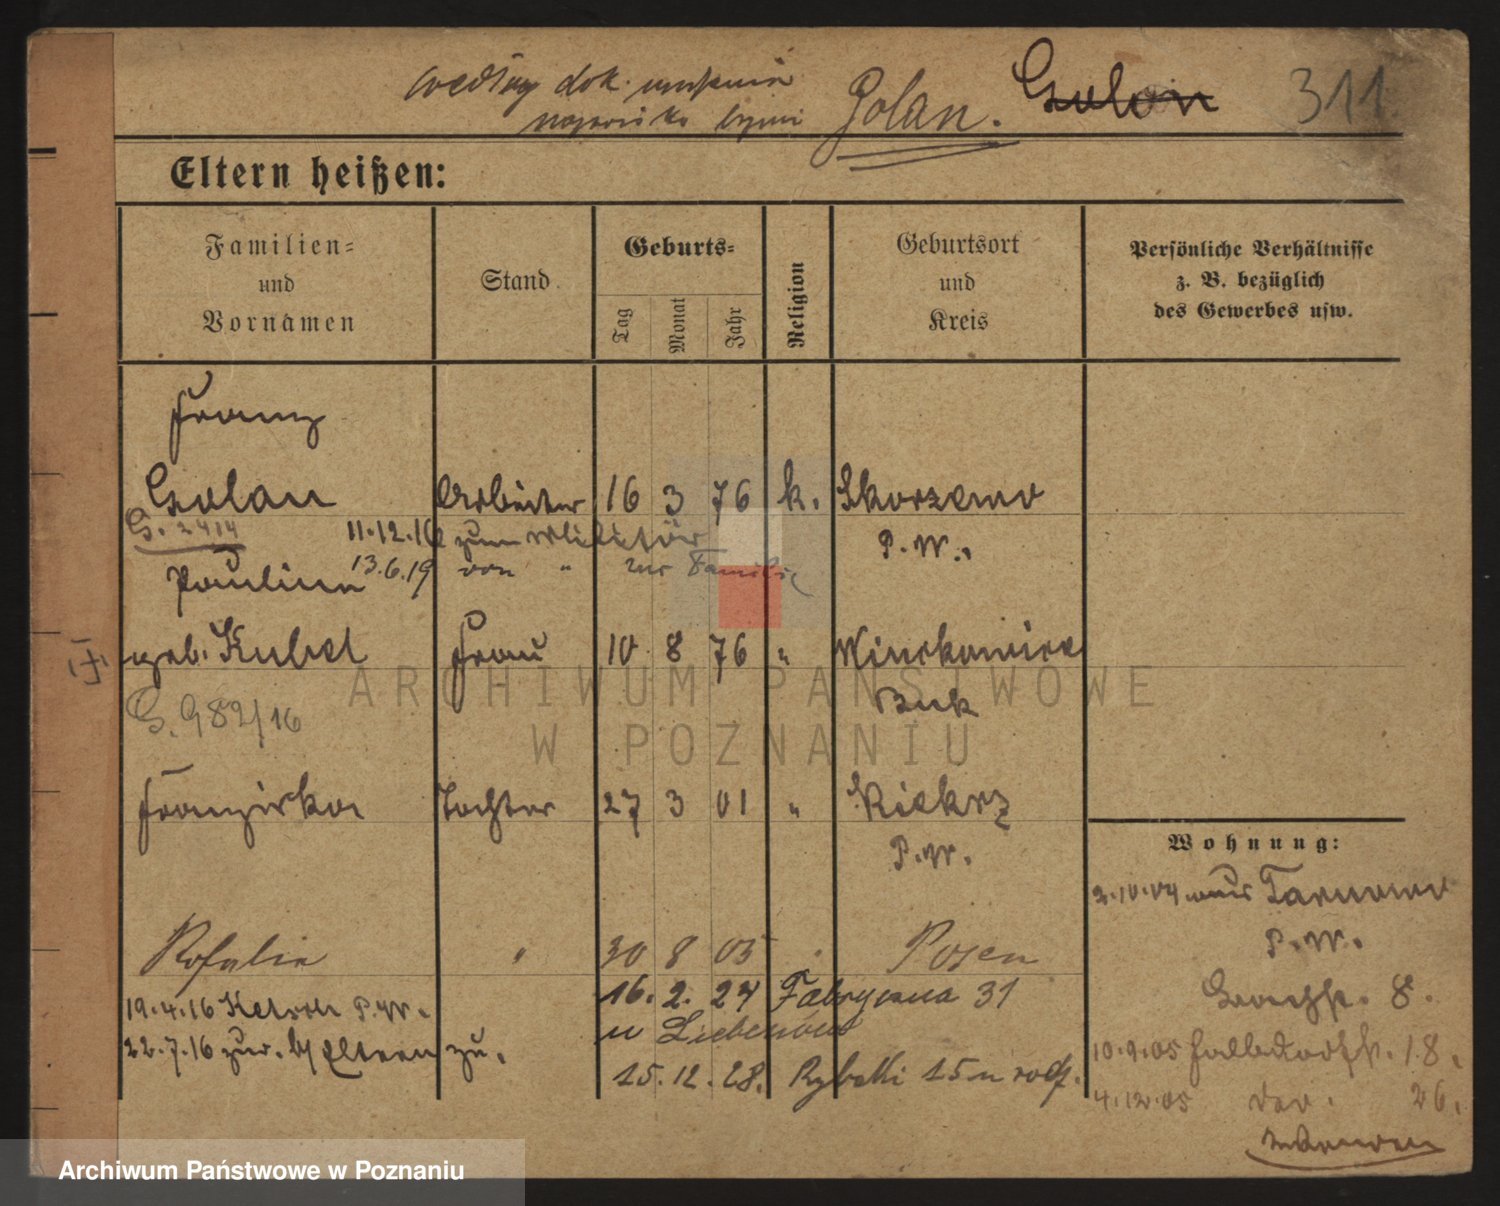 według dok. urodzenia
nazwisko brzmi Golan. Golon 311
Eltern heißen:
Familien=
und
Vornamen
Stand
Geburts=
Tag
Monat
Jahr
Religion
Geburtsort
und
Kreis
Persönliche Verhältnisse
z. B. bezüglich
des Gewerbes usw.
Franz
Golan Arbeiter 16 3 76 k. Skorzewo
G. 2414 11.12.16 zum Militär P. W.
Pauline 13.6.19 von " zur Familie
geb. Kubel Frau 10 8 76 "
Buk
G. 982/16
Franziska Tochter 27 3 01 " Kiekrz
P. W.
Wohnung:
2.10.04 aus Tarnowo
P. W.
Rosalia " 30 8 05 Posen
16. 2. 24 Fabryczna 31
8.
19.4.16 P. W.
u
22.7.16 zur. b/ Eltern zu.
10.9.05 18.
15. 12. 28. Rybaki 15 u rodz.
4.12.05 26.
ARCHIWUM PAŃSTWOWE
W POZNANIU
Archiwum Państwowe w Poznaniu